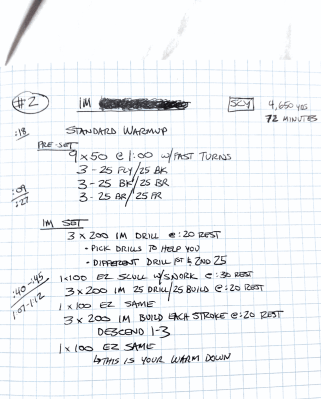 #2 IM SCY 4,650 YDS
72 MINUTES
:18 STANDARD WARMUP
PRE-SET
9 x 50 @ 1:00 w/FAST TURNS
3 - 25 FLY/25 BK
3 - 25 BK/25 BR
:09 3 - 25 BR/25 FR
:27
IM SET
3 x 200 IM DRILL @ :20 REST
- PICK DRILLS TO HELP YOU
- DIFFERENT DRILL 1ST & 2ND 25
1x100 EZ SCULL W/SNORK @ :30 REST
:40-:45 3 x 200 IM 25 DRILL/25 BUILD @ :20 REST
1:07-1:12 1 x 100 EZ SAME
3 x 200 IM BUILD EACH STROKE @ :20 REST
DESCEND 1-3
1 x 100 EZ SAME
↳ THIS IS YOUR WARM DOWN